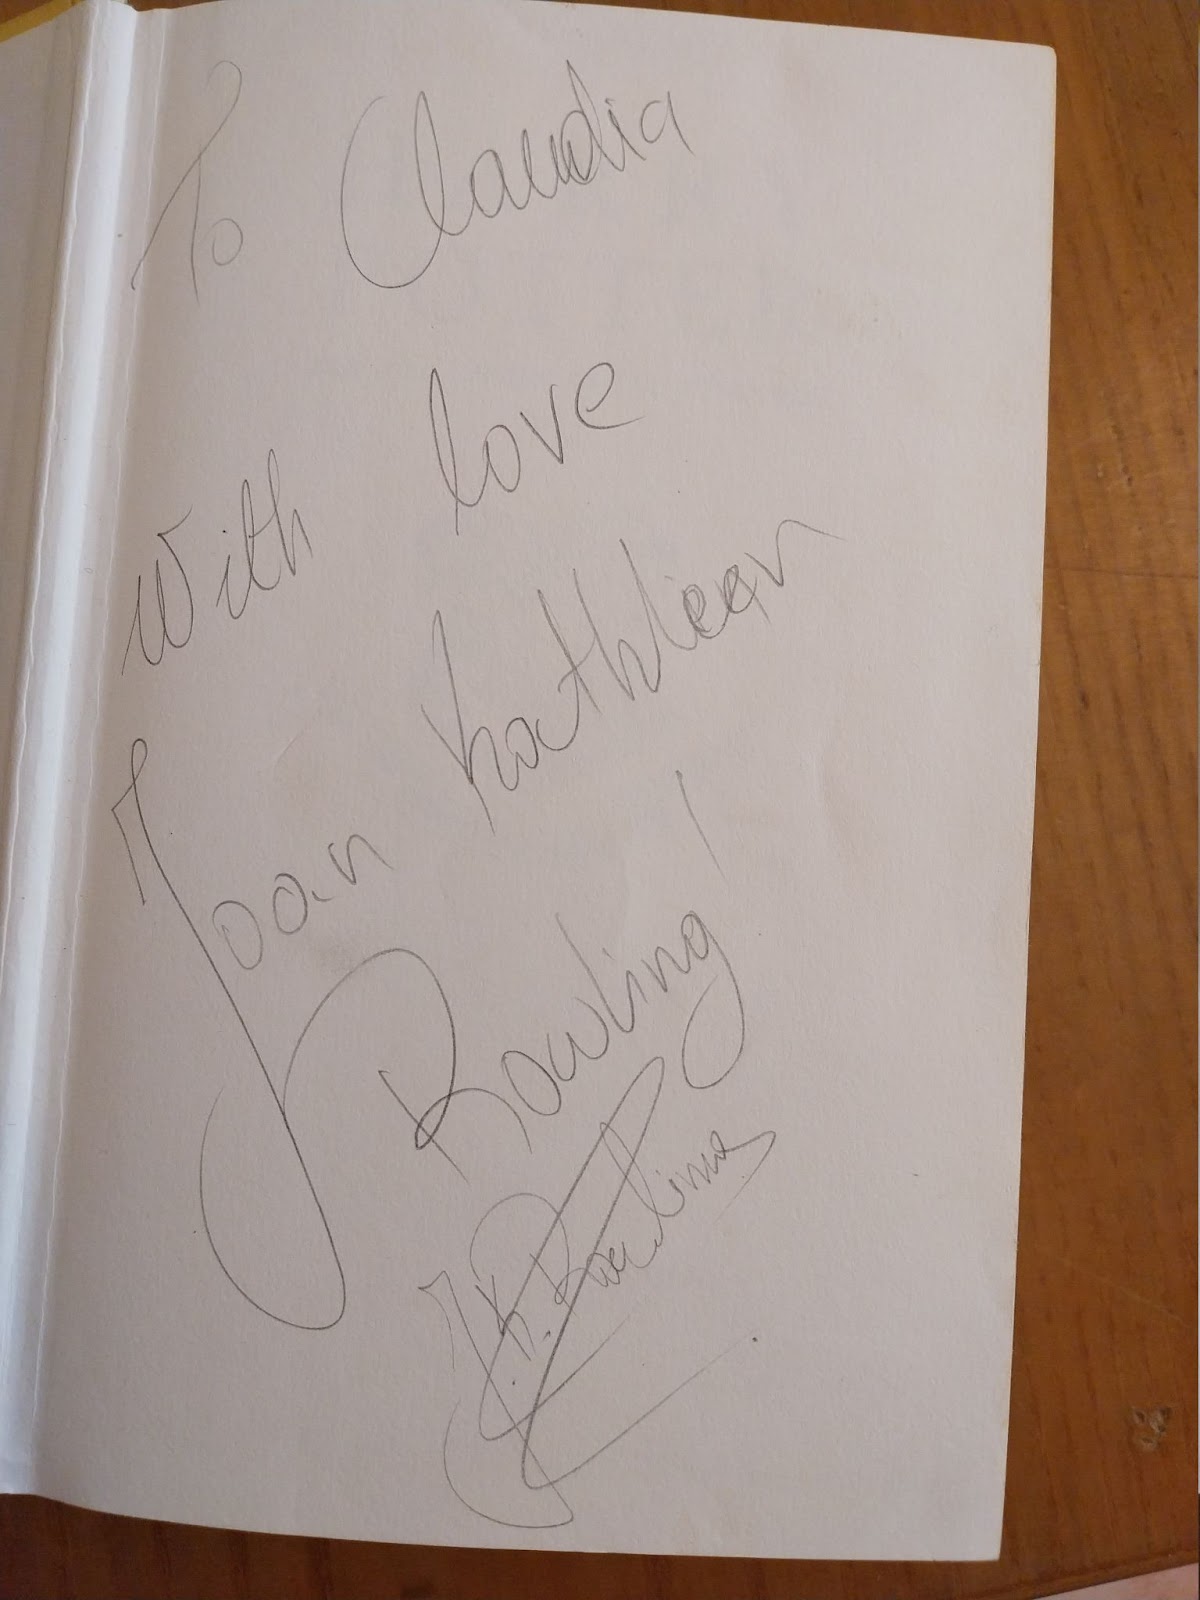 To Claudia
With love
Joan Kathleen
Rowling!
J.K. Rowling